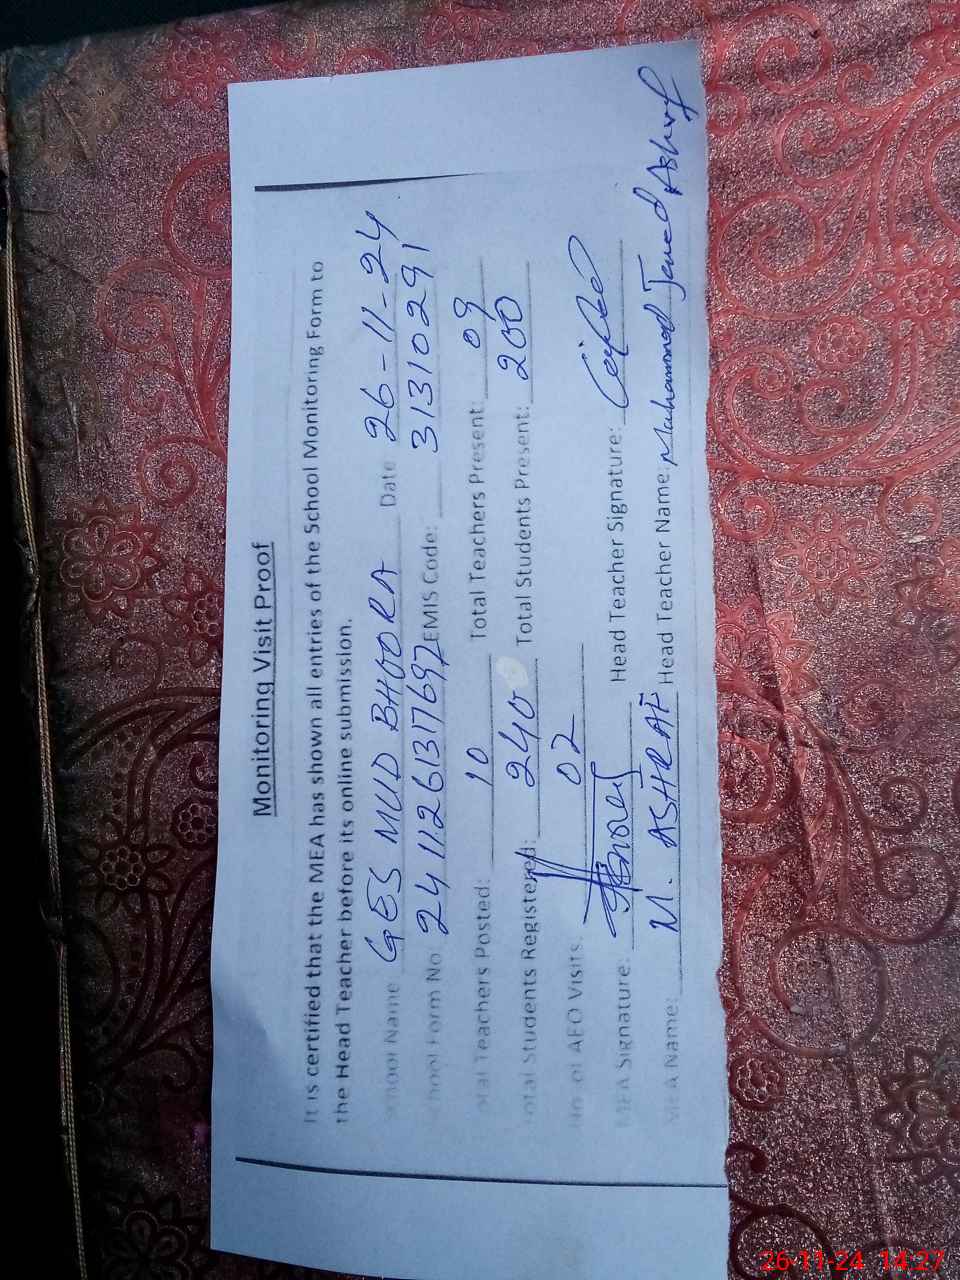 Monitoring Visit Proof
It is certified that the MEA has shown all entries of the School Monitoring Form to
the Head Teacher before its online submission.
School Name GES MUD BHOORA Date 26-11-24
School Form No 24111261317697 EMIS Code: 31310291
Total Teachers Posted: 10 Total Teachers Present: 09
Total Students Registered: 240 Total Students Present: 200
No of AEO Visits. 02
MEA Signature: Head Teacher Signature:
MEA Name: M. ASHRAF Head Teacher Name: Muhammad Javed Ashraf
26-11-24 14:27